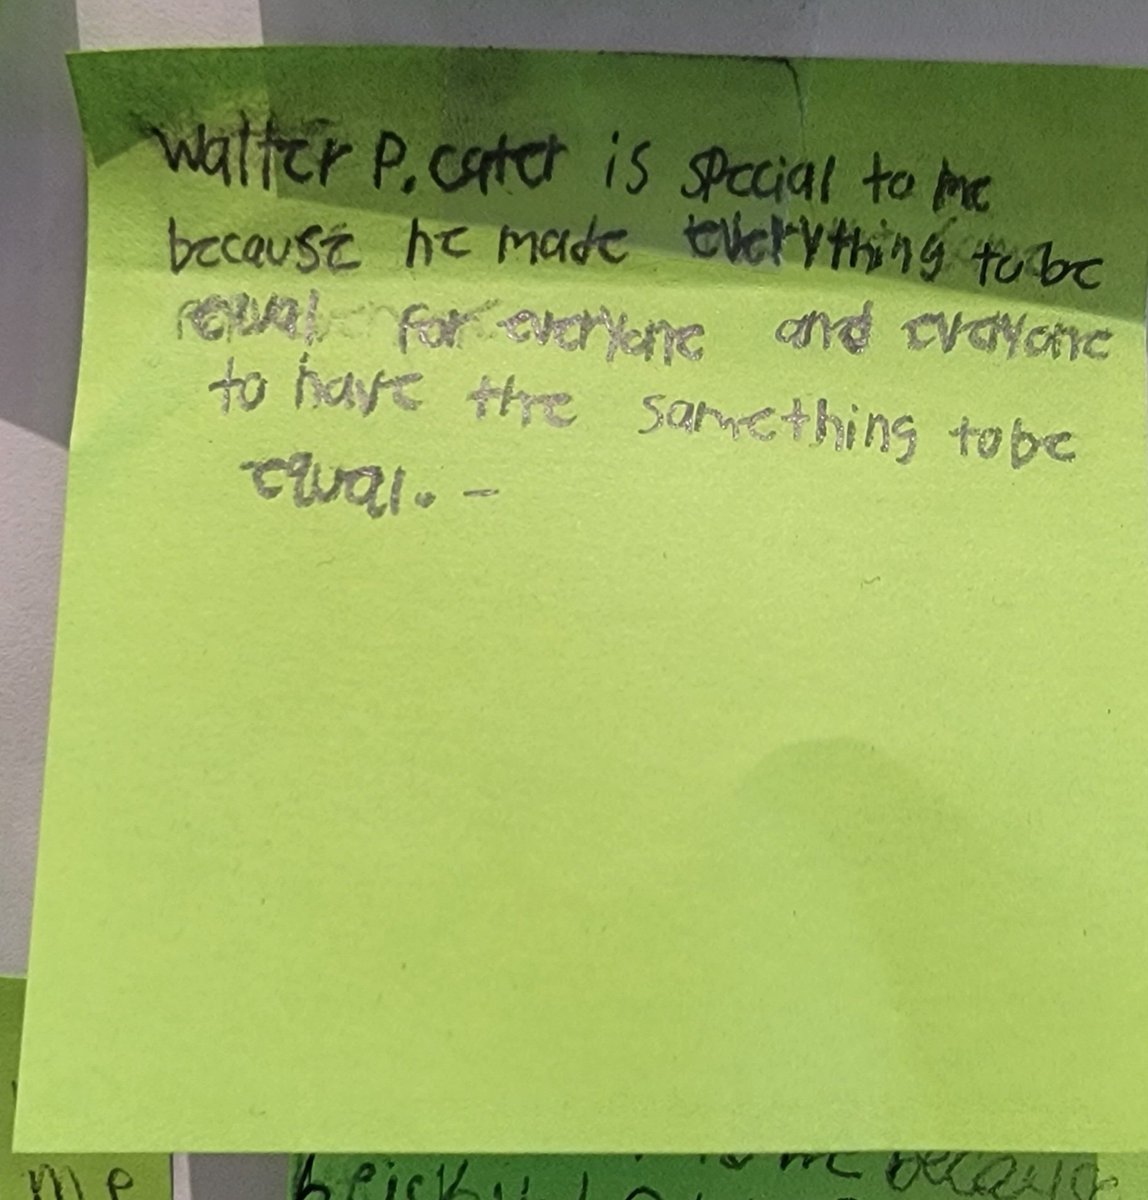 Walter P. Cater is special to me
because he made everything to be
equal for everyone and everyone
to have the samething to be
equal. -
me
because